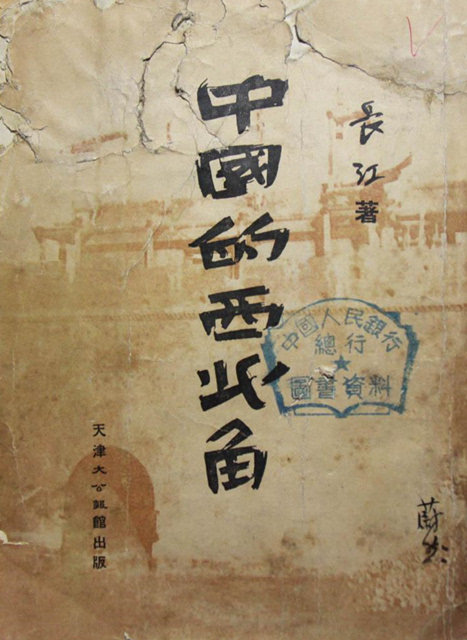 中國的西北角
長江著
中國人民銀行
總行
圖書資料
天津大公報館出版